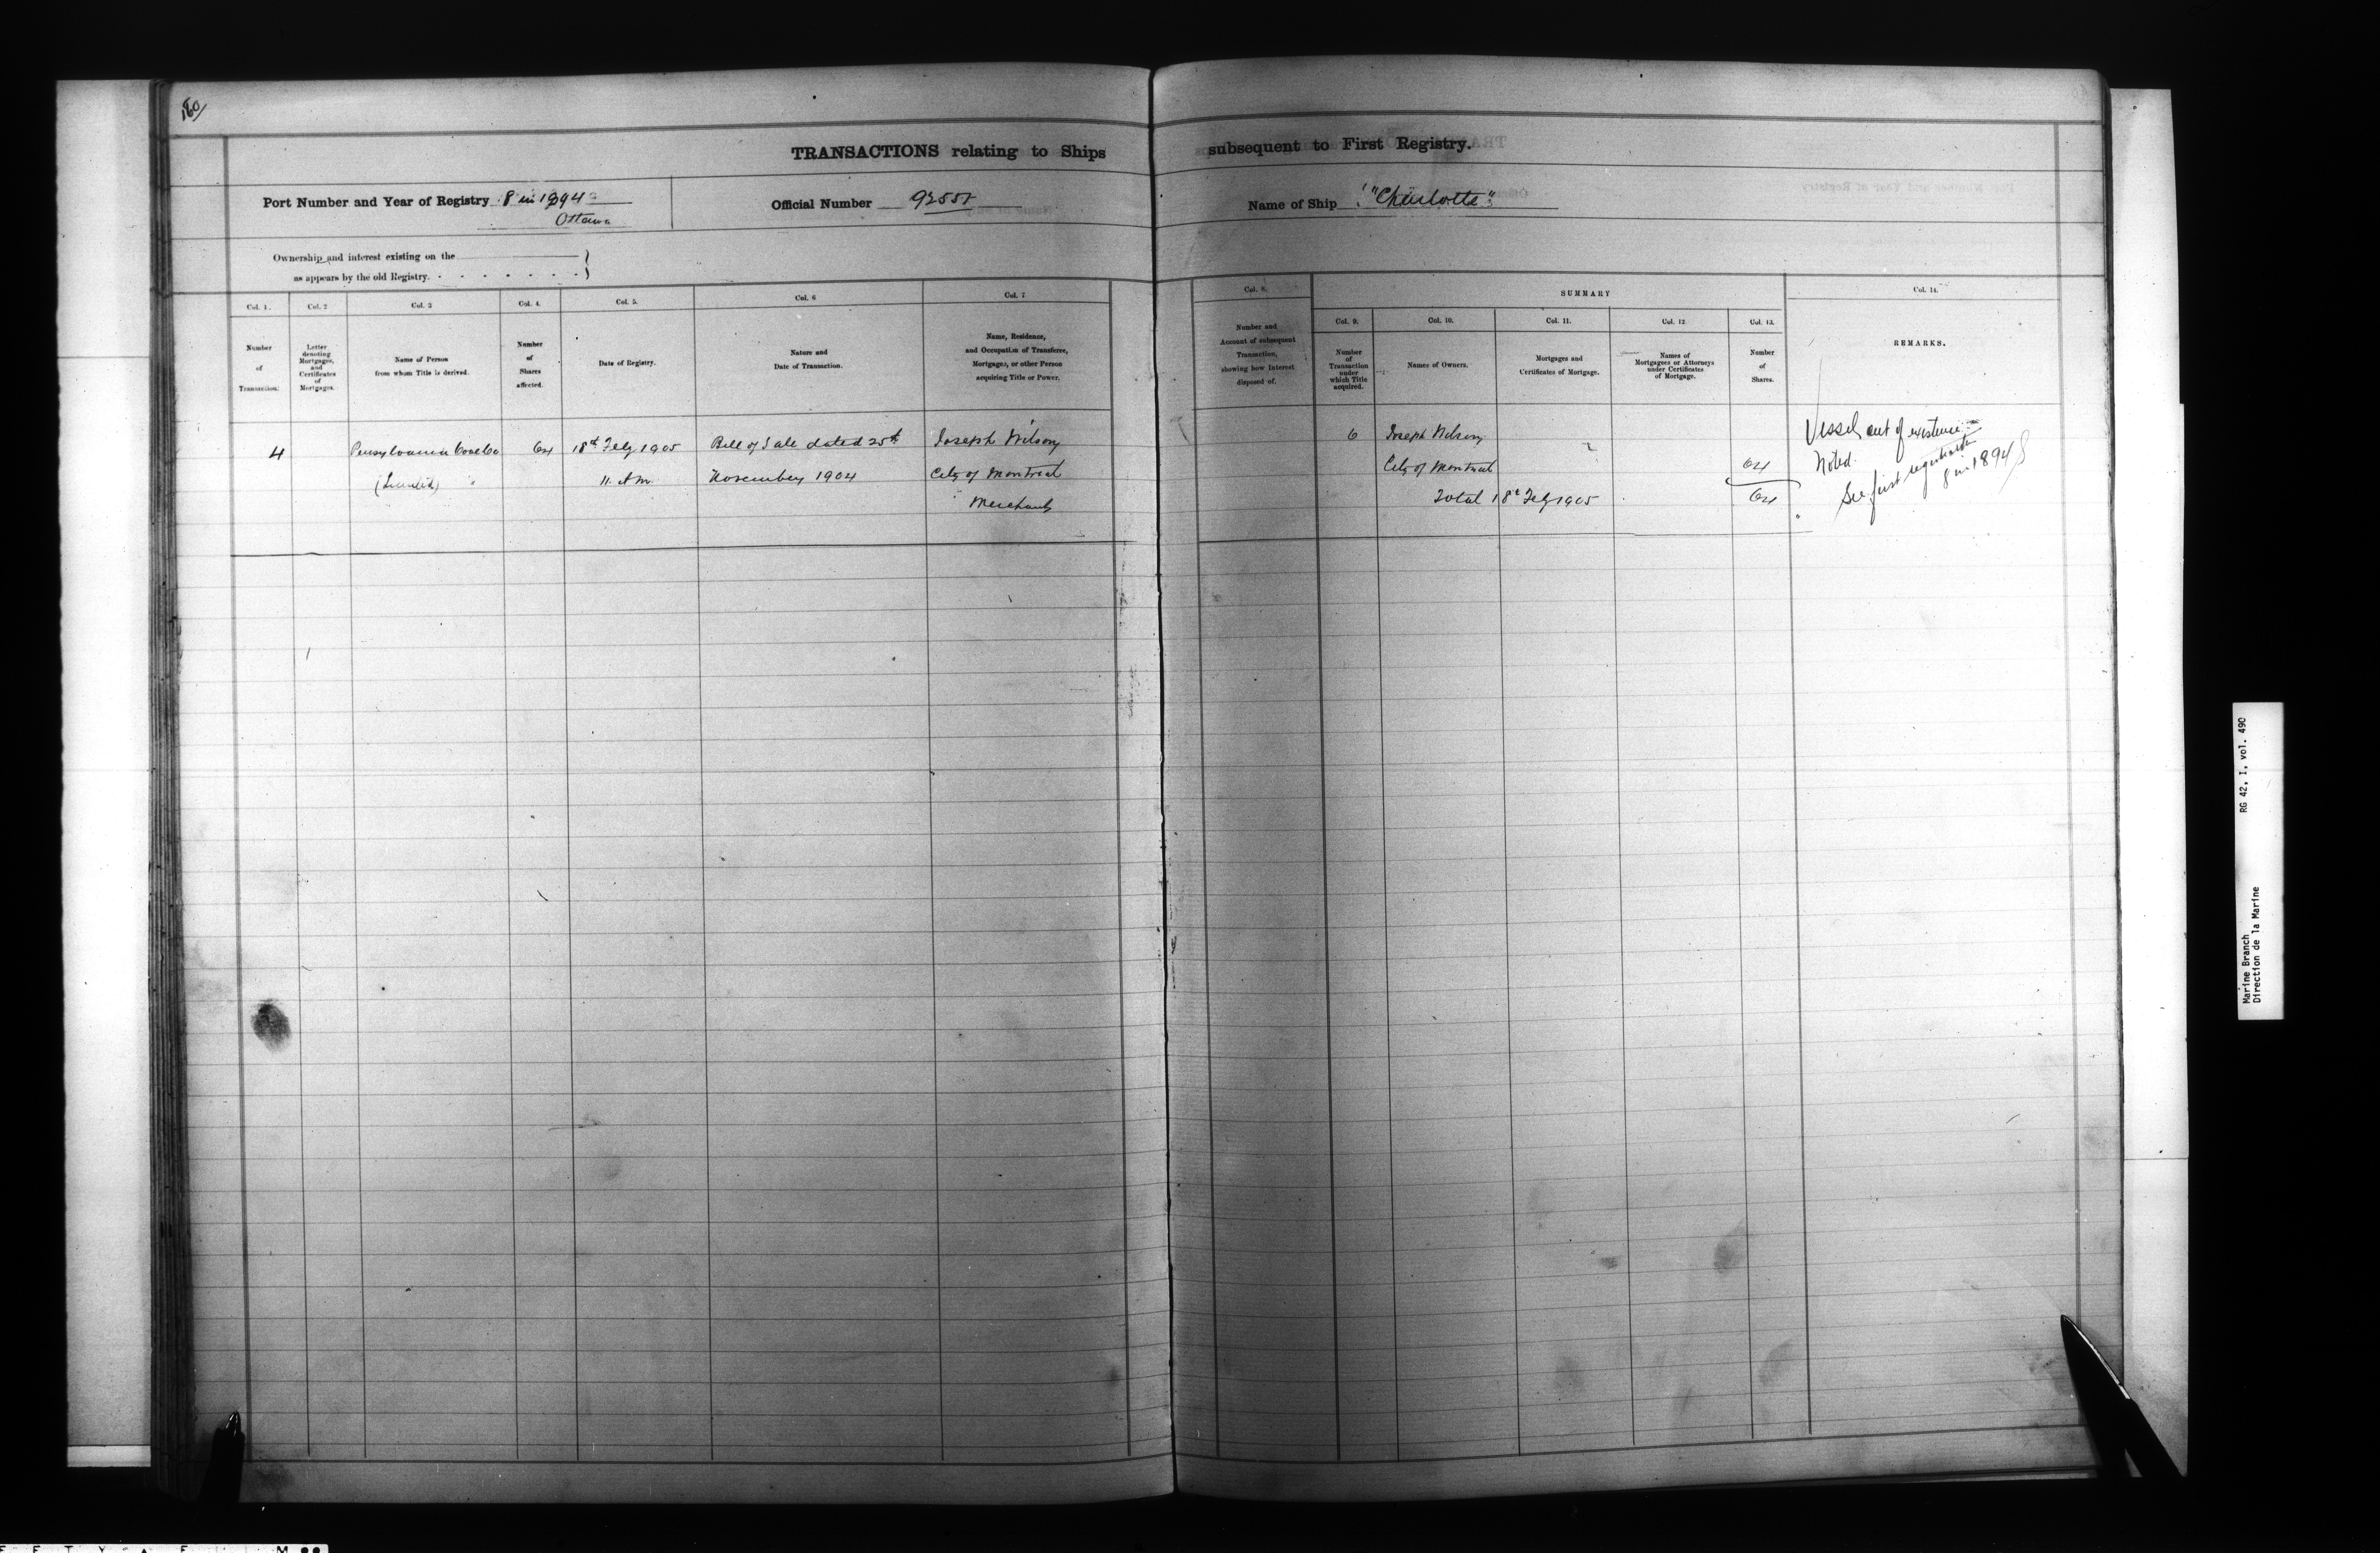 180/
TRANSACTIONS relating to Ships subsequent to First Registry.
Port Number and Year of Registry 8 in 1894
Ottawa
Official Number
Name of Ship "Charlotte"
Ownership and interest existing on the
as appears by the old Registry.
Col. 1. Col. 2 Col. 3 Col. 4. Col. 5. Col. 6 Col. 7
Number of Transaction.
Letter denoting Mortgages, and Certificates of Mortgages.
Name of Person from whom Title is derived.
Number of Shares affected.
Date of Registry.
Nature and Date of Transaction.
Name, Residence, and Occupation of Transferee, Mortgagee, or other Person acquiring Title or Power.
Col. 8.
Number and Account of subsequent Transaction, showing how Interest disposed of.
SUMMARY
Col. 9. Col. 10. Col. 11. Col. 12 Col. 13.
Number of Transaction under which Title acquired.
Names of Owners.
Mortgages and Certificates of Mortgage.
Names of Mortgagees or Attorneys under Certificates of Mortgage.
Number of Shares.
Col. 14.
REMARKS.
4 64 18th Feby 1905 Bill of Sale dated 25th Joseph Wilson
(Limited) " 11. A m. November 1904 City of Montreal
Merchant
6 Joseph Wilson
City of Montreal 64
Total 18th Feby 1905 64
Vessel out of existence
Noted.
See first registration
8 in 1894
Marine Branch RG 42, I, vol. 490
Direction de la Marine